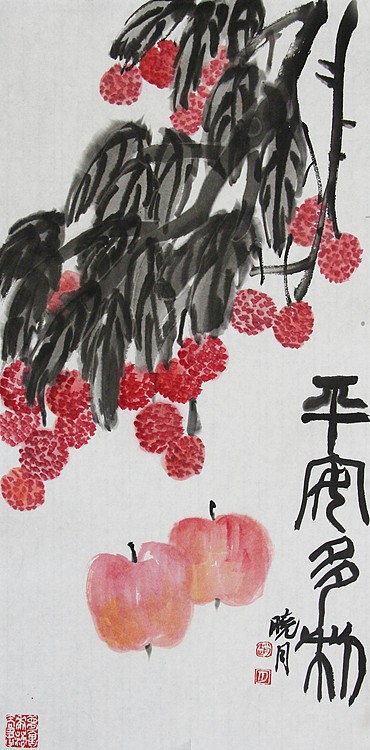 平安多利
晓月